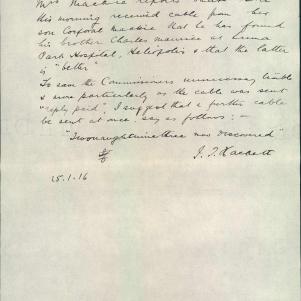 this morning received cable from her
son Corporal that he has found
his brother Charles Maurice at Luna
Park Hospital, Heliopolis & that the latter
is "better"
To save the Commissioners unnecessary trouble
& more particularly as the cable was sent
"reply paid", I suggest that a further cable
be sent at once, say as follows: —
"Twonaughtninethree was discovered"
J. J. Hackett
25.1.16